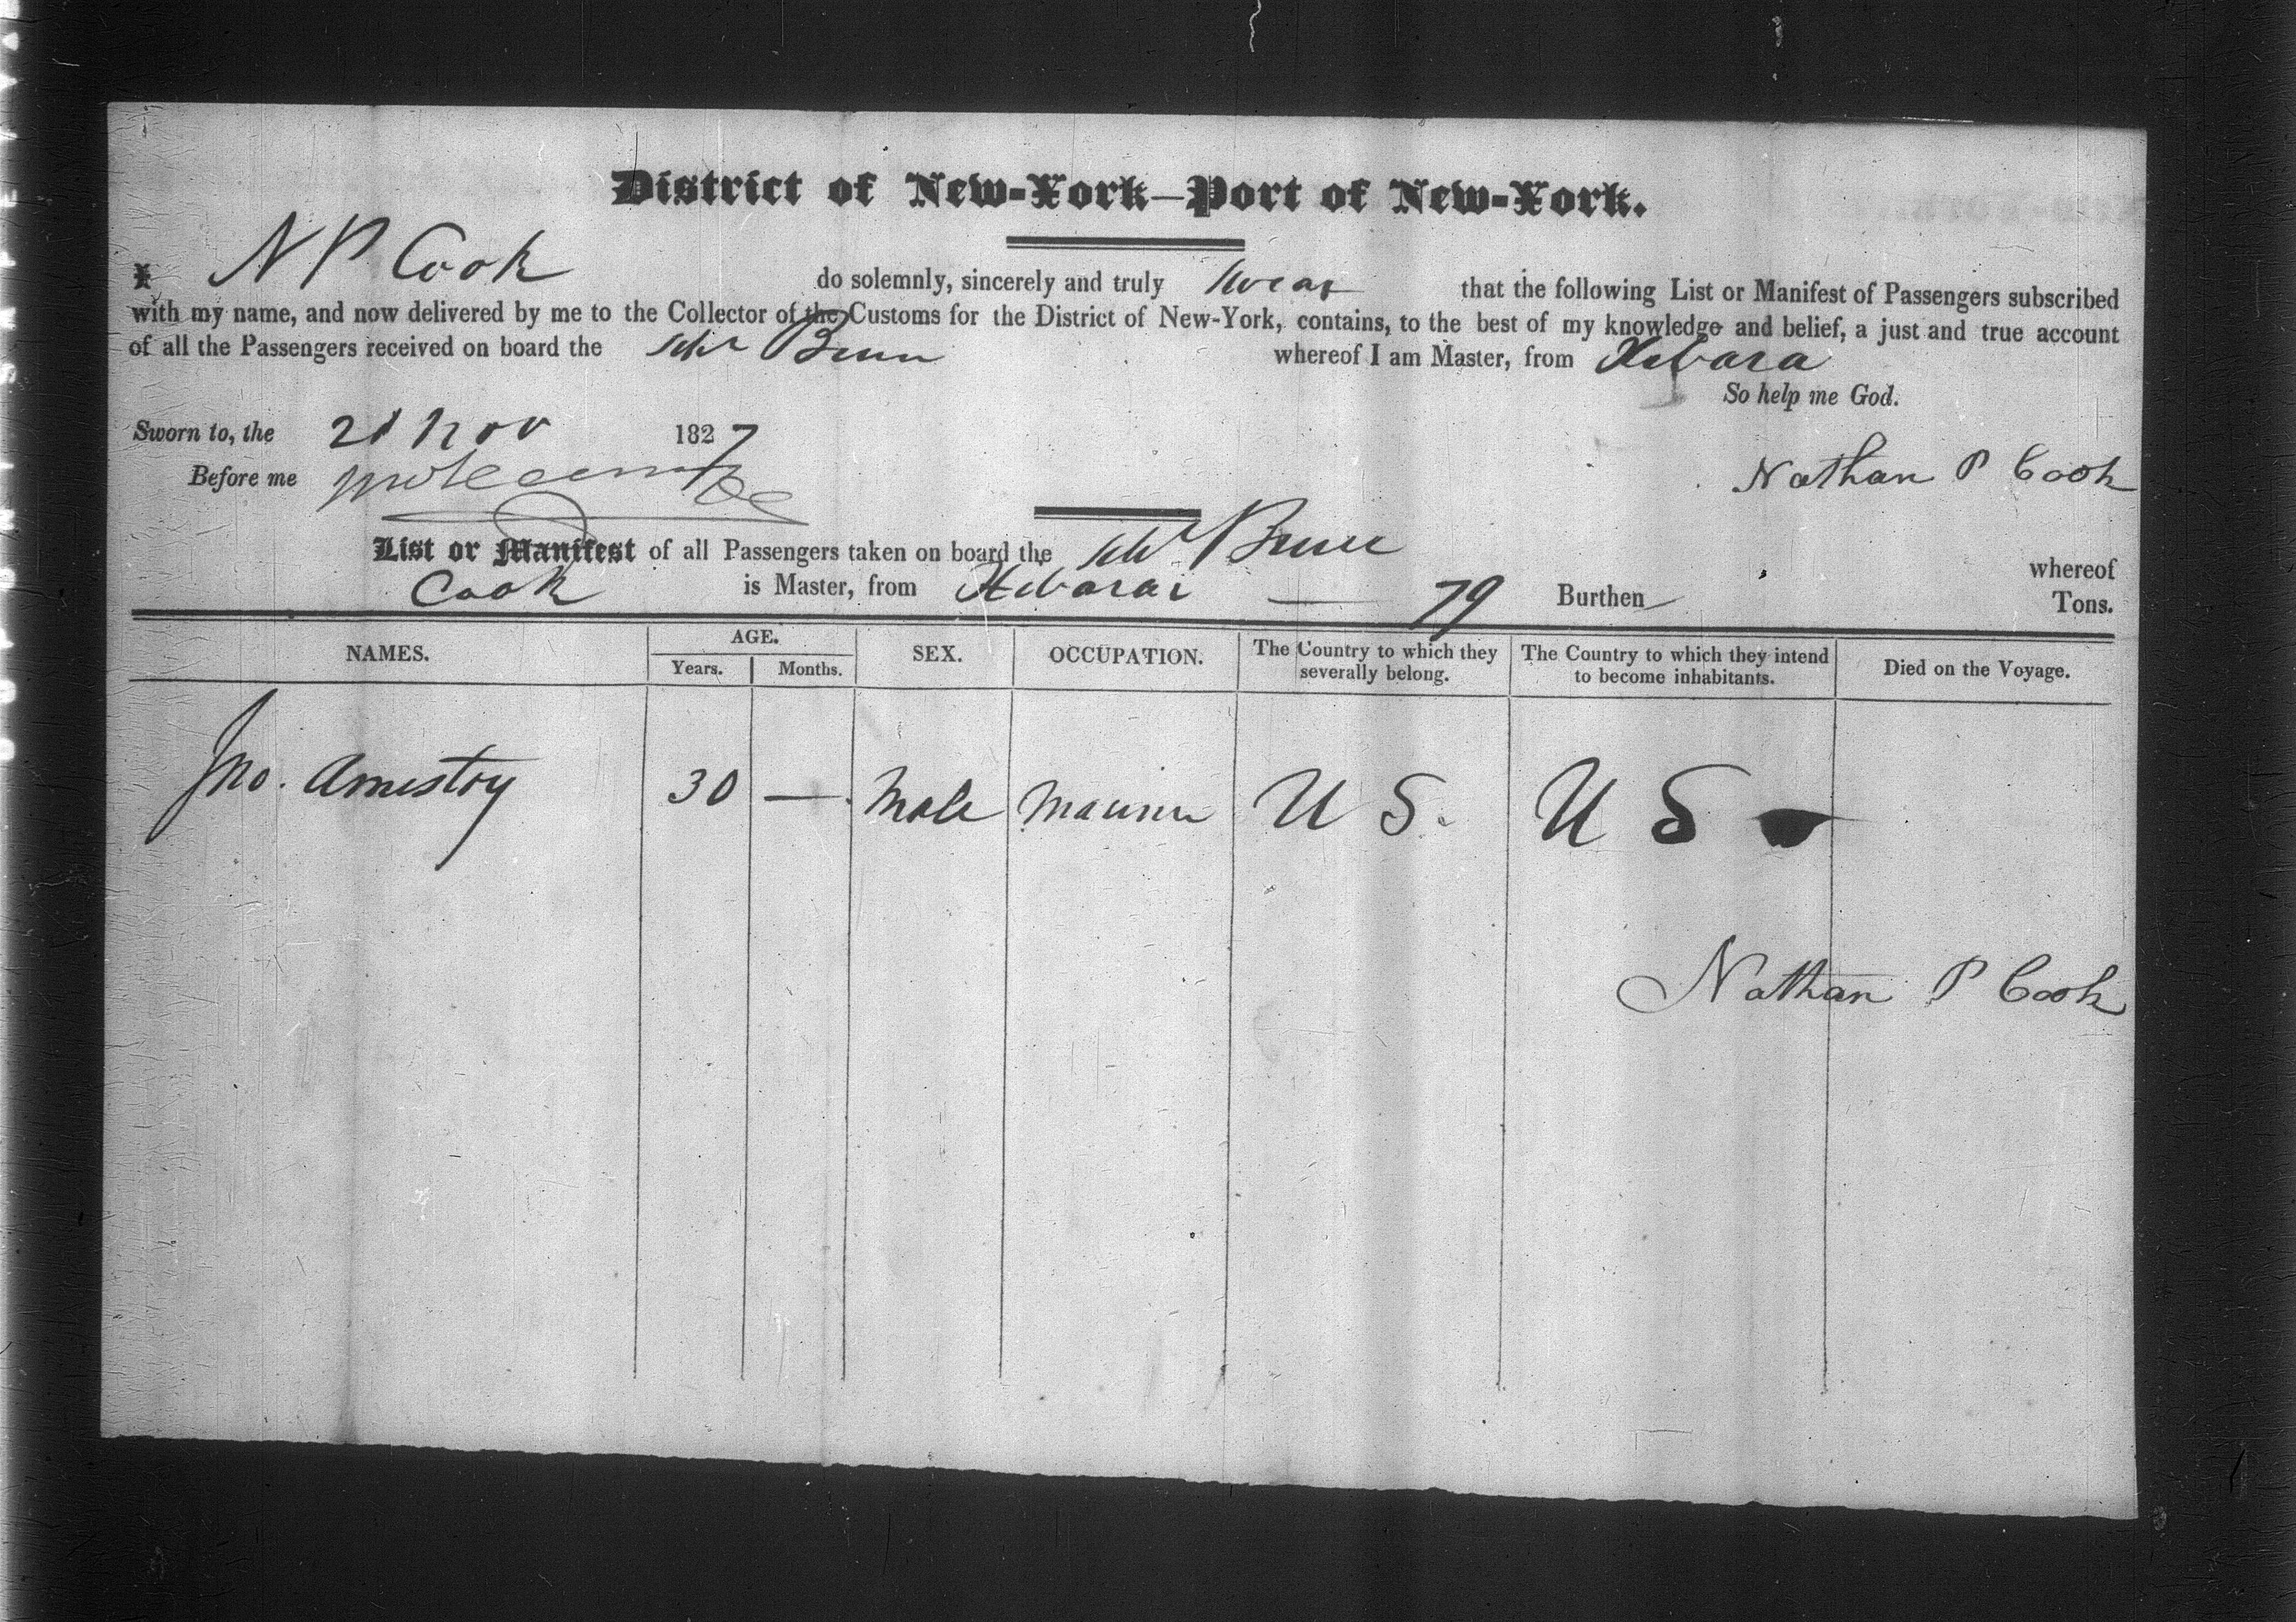 District of New-York—Port of New-York.
I N P Cook do solemnly, sincerely and truly swear that the following List or Manifest of Passengers subscribed
with my name, and now delivered by me to the Collector of the Customs for the District of New-York, contains, to the best of my knowledge and belief, a just and true account
of all the Passengers received on board the Schr whereof I am Master, from
So help me God.
Sworn to, the 21 Nov 1827
Before me
Nathan P Cook
List or Manifest of all Passengers taken on board the Schr whereof
Cook is Master, from 79 Burthen Tons.
NAMES. AGE. SEX. OCCUPATION. The Country to which they severally belong. The Country to which they intend to become inhabitants. Died on the Voyage.
Years. Months.
Jno. Amestoy 30 — Male Mariner U S. U S
Nathan P Cook